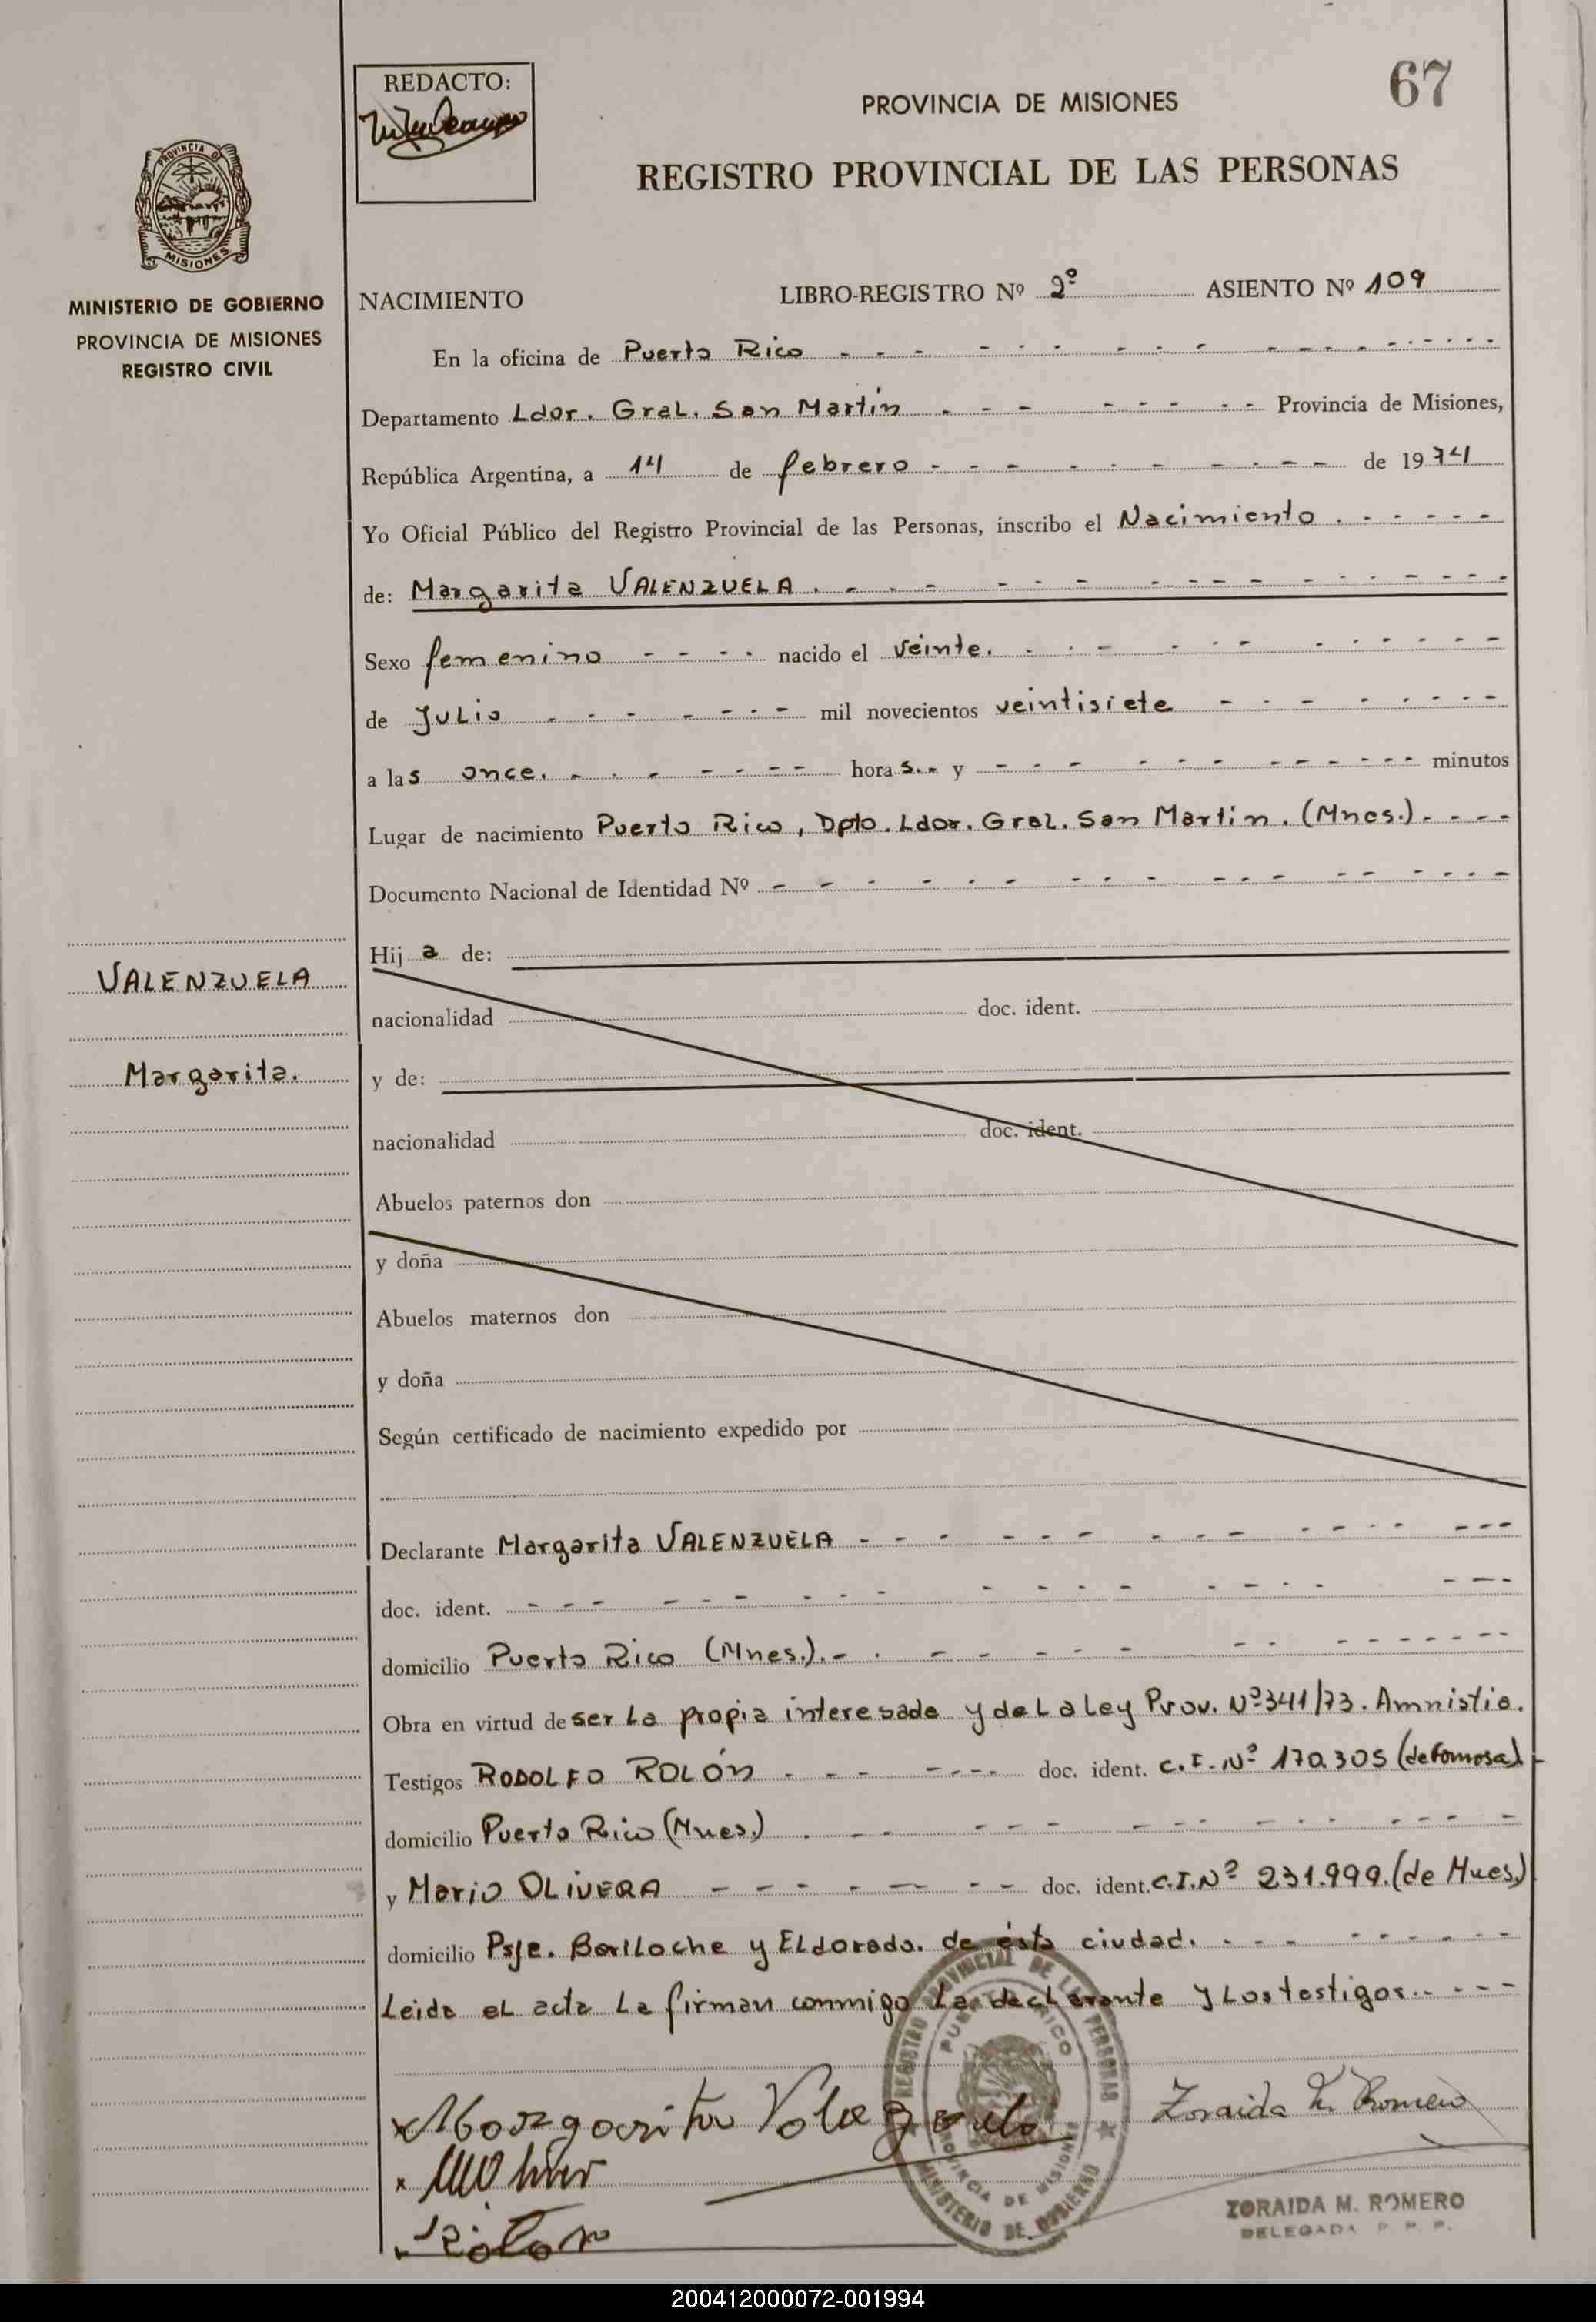 REDACTO:
PROVINCIA DE MISIONES
67
REGISTRO PROVINCIAL DE LAS PERSONAS
PROVINCIA DE
MISIONES
MINISTERIO DE GOBIERNO
PROVINCIA DE MISIONES
REGISTRO CIVIL
NACIMIENTO LIBRO-REGISTRO Nº 2º ASIENTO Nº 109
En la oficina de Puerto Rico
Departamento Ldor. Gral. San Martín Provincia de Misiones,
República Argentina, a 14 de febrero de 1974
Yo Oficial Público del Registro Provincial de las Personas, inscribo el Nacimiento
de: Margarita VALENZUELA
Sexo femenino nacido el veinte.
de Julio mil novecientos veintisiete
a las once. horas. y minutos
Lugar de nacimiento Puerto Rico, Dpto. Ldor. Gral. San Martín. (Mnes.).
Documento Nacional de Identidad Nº
Hija de:
VALENZUELA
nacionalidad doc. ident.
Margarita.
y de:
nacionalidad doc. ident.
Abuelos paternos don
y doña
Abuelos maternos don
y doña
Según certificado de nacimiento expedido por
Declarante Margarita VALENZUELA
doc. ident.
domicilio Puerto Rico (Mnes.).
Obra en virtud de ser la propia interesada y de la Ley Prov. Nº 341/73. Amnistia.
Testigos RODOLFO ROLÓN doc. ident. C.I. Nº 170.305 (de Formosa)
domicilio Puerto Rico (Mnes.)
y Mario OLIVERA doc. ident. C.I. Nº 231.999. (de Mnes.)
domicilio Psje. Bariloche y Eldorado. de ésta ciudad.
Leida el acta la firman conmigo la declarante y los testigos.
REGISTRO PROVINCIAL DE LAS PERSONAS
PUERTO RICO
PROVINCIA DE MISIONES
MINISTERIO DE GOBIERNO
Margarita Valenzuela
Zoraida M. Romero
Rolon
ZORAIDA M. ROMERO
DELEGADA R. P. P.
200412000072-001994